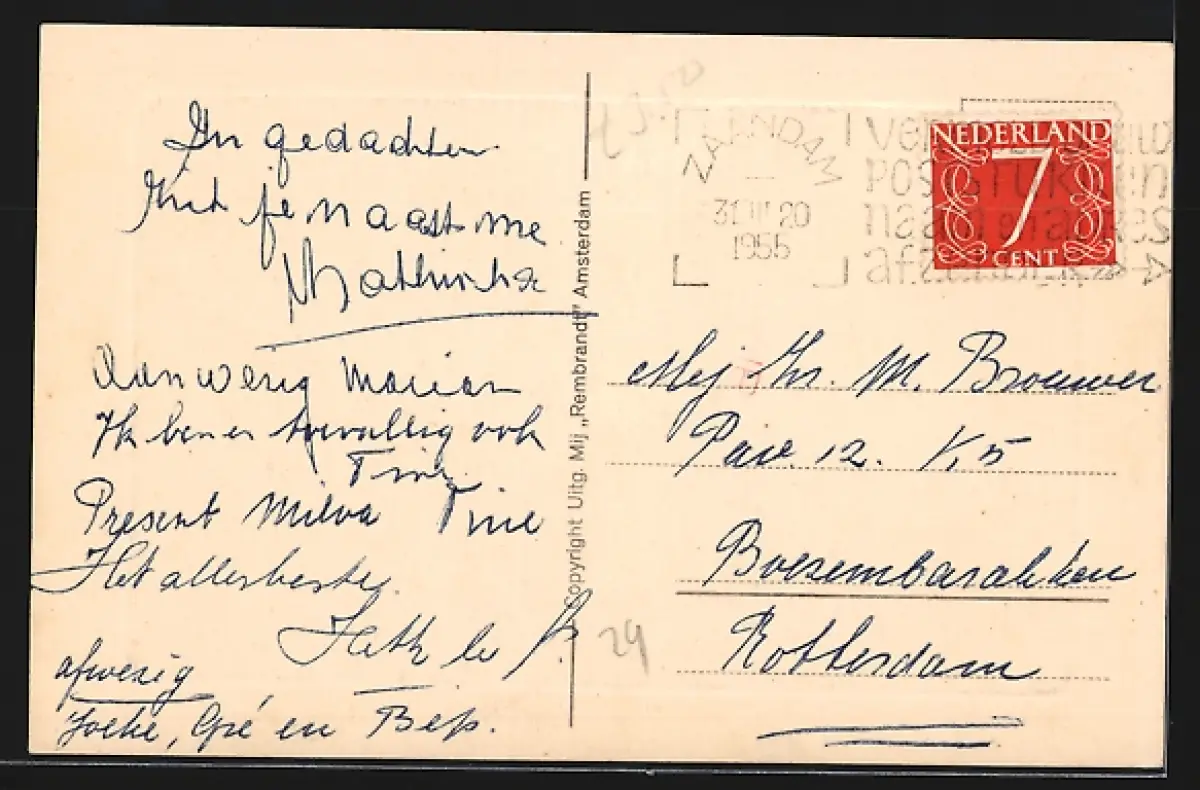 In gedachten
zit je naast me
Mathinka
Aanwezig Marian
Ik ben er toevallig ook
Tiny
Present Milva Tine
Het allerbeste
afwezig
Joeke, Gré en Bep.
Copyright Uitg. Mij „Rembrandt" Amsterdam
49.50
ZAANDAM
31 III 20
1955
NEDERLAND
7
CENT
naar
Mej Zr. M. Brouwer
Pav. 12. K5
Boezembarakken
Rotterdam
29